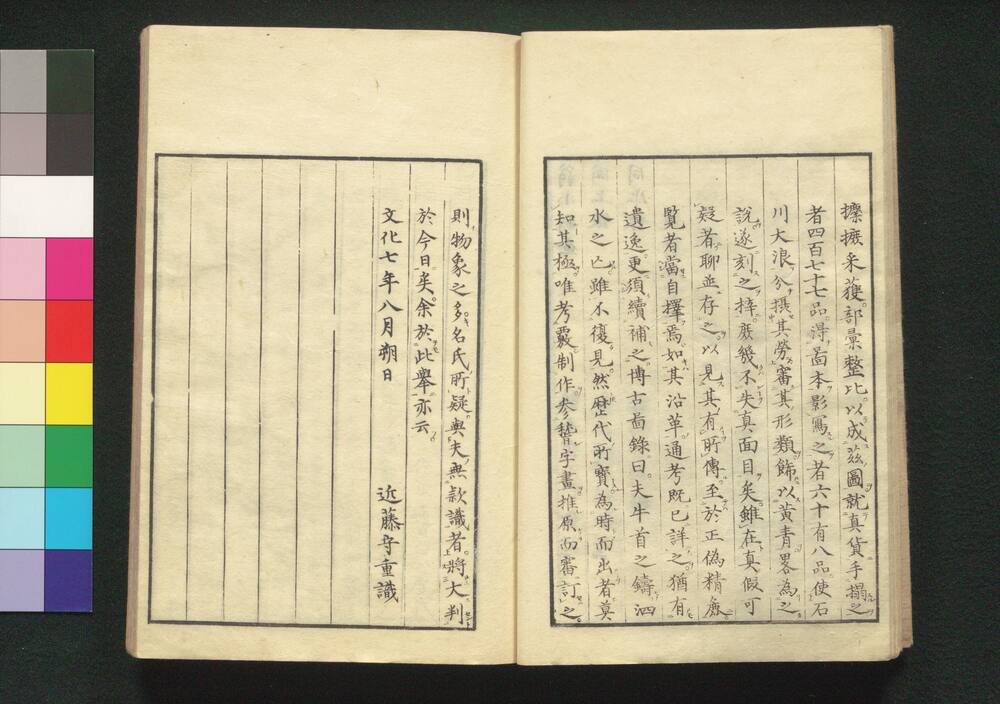 攟摭采獲部彙整比以成茲圖就真貨手搨之
者四百七十七品得啚本影寫之者六十有八品使石
川大浪分攝其勞審其形類餙以黃青畧為之
說遂刻之梓庶幾不失真面目矣雖在真假可
疑者聊並存之以見其有所傳至於正偽精麁
覧者當自擇焉如其沿革通考既已詳之猶有
遺逸更須續補之博古啚錄曰夫牛首之鑄泗
水之亡雖不復見然歴代所寶為時而出者莫
知其極唯考覈制作參稽字畫推原而審訂之
則物象之多名氏所疑與夫無款識者將大判
於今日矣余於此舉亦云
文化七年八月朔日
近藤守重識